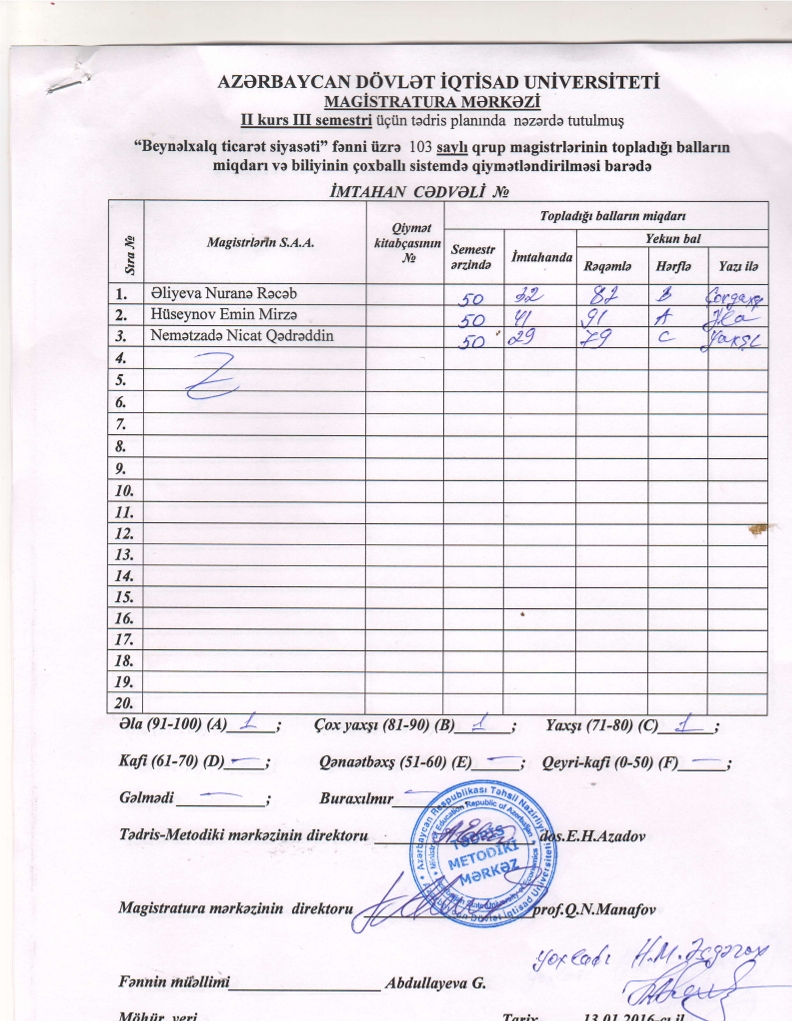 AZƏRBAYCAN DÖVLƏT İQTİSAD UNİVERSİTETİ
MAGİSTRATURA MƏRKƏZİ
II kurs III semestri üçün tədris planında nəzərdə tutulmuş
“Beynəlxalq ticarət siyasəti” fənni üzrə 103 saylı qrup magistrlərinin topladığı balların
miqdarı və biliyinin çoxballı sistemdə qiymətləndirilməsi barədə
İMTAHAN CƏDVƏLİ №
Sıra №
Magistrlərin S.A.A.
Qiymət kitabçasının №
Topladığı balların miqdarı
Semestr ərzində
İmtahanda
Yekun bal
Rəqəmlə Hərflə Yazı ilə
1. Əliyeva Nuranə Rəcəb 50 32 82 B Çox yaxşı
2. Hüseynov Emin Mirzə 50 41 91 A Əla
3. Nemətzadə Nicat Qədrəddin 50 29 79 C Yaxşı
4.
5.
6.
7.
8.
9.
10.
11.
12.
13.
14.
15.
16.
17.
18.
19.
20.
Əla (91-100) (A) 1 ; Çox yaxşı (81-90) (B) 1 ; Yaxşı (71-80) (C) 1 ;
Kafi (61-70) (D) — ; Qənaətbəxş (51-60) (E) — ; Qeyri-kafi (0-50) (F) — ;
Gəlmədi — ; Buraxılmır —
Tədris-Metodiki mərkəzinin direktoru dos.E.H.Azadov
TƏDRİS METODİKİ MƏRKƏZ
Azərbaycan Respublikası Təhsil Nazirliyi
Ministry of Education Republic of Azerbaijan
Azərbaycan Dövlət İqtisad Universiteti
Magistratura mərkəzinin direktoru prof.Q.N.Manafov
Yoxladı H.M. Əsgərov
Fənnin müəllimi Abdullayeva G.
Möhür yeri Tarix 13.01.2016-cı il